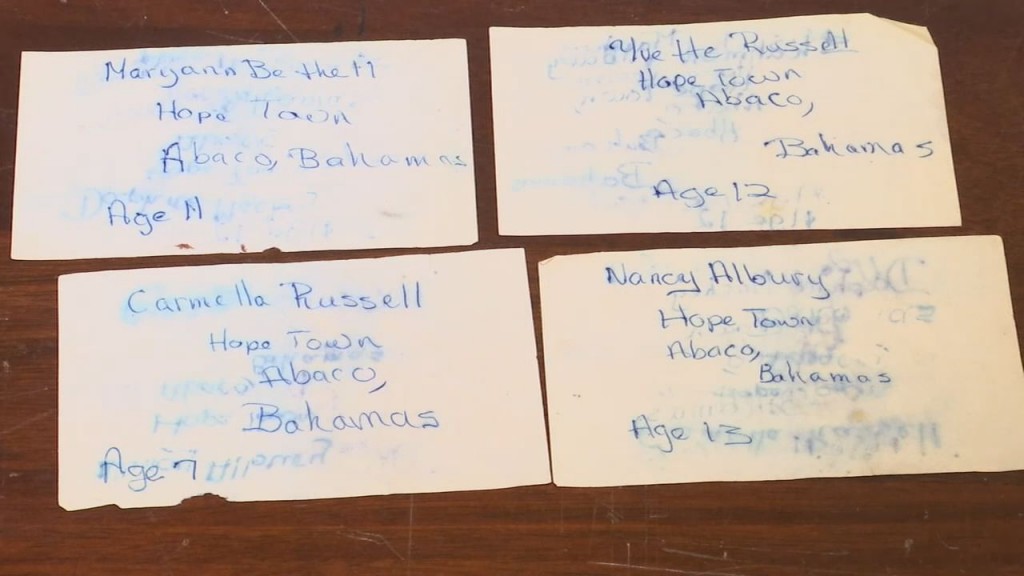 Maryann Bethell
Hope Town
Abaco, Bahamas
Age 11
Yvette Russell
Hope Town
Abaco,
Bahamas
Age 12
Carmella Russell
Hope Town
Abaco,
Bahamas
Age 7
Nancy Albury
Hope Town
Abaco,
Bahamas
Age 13